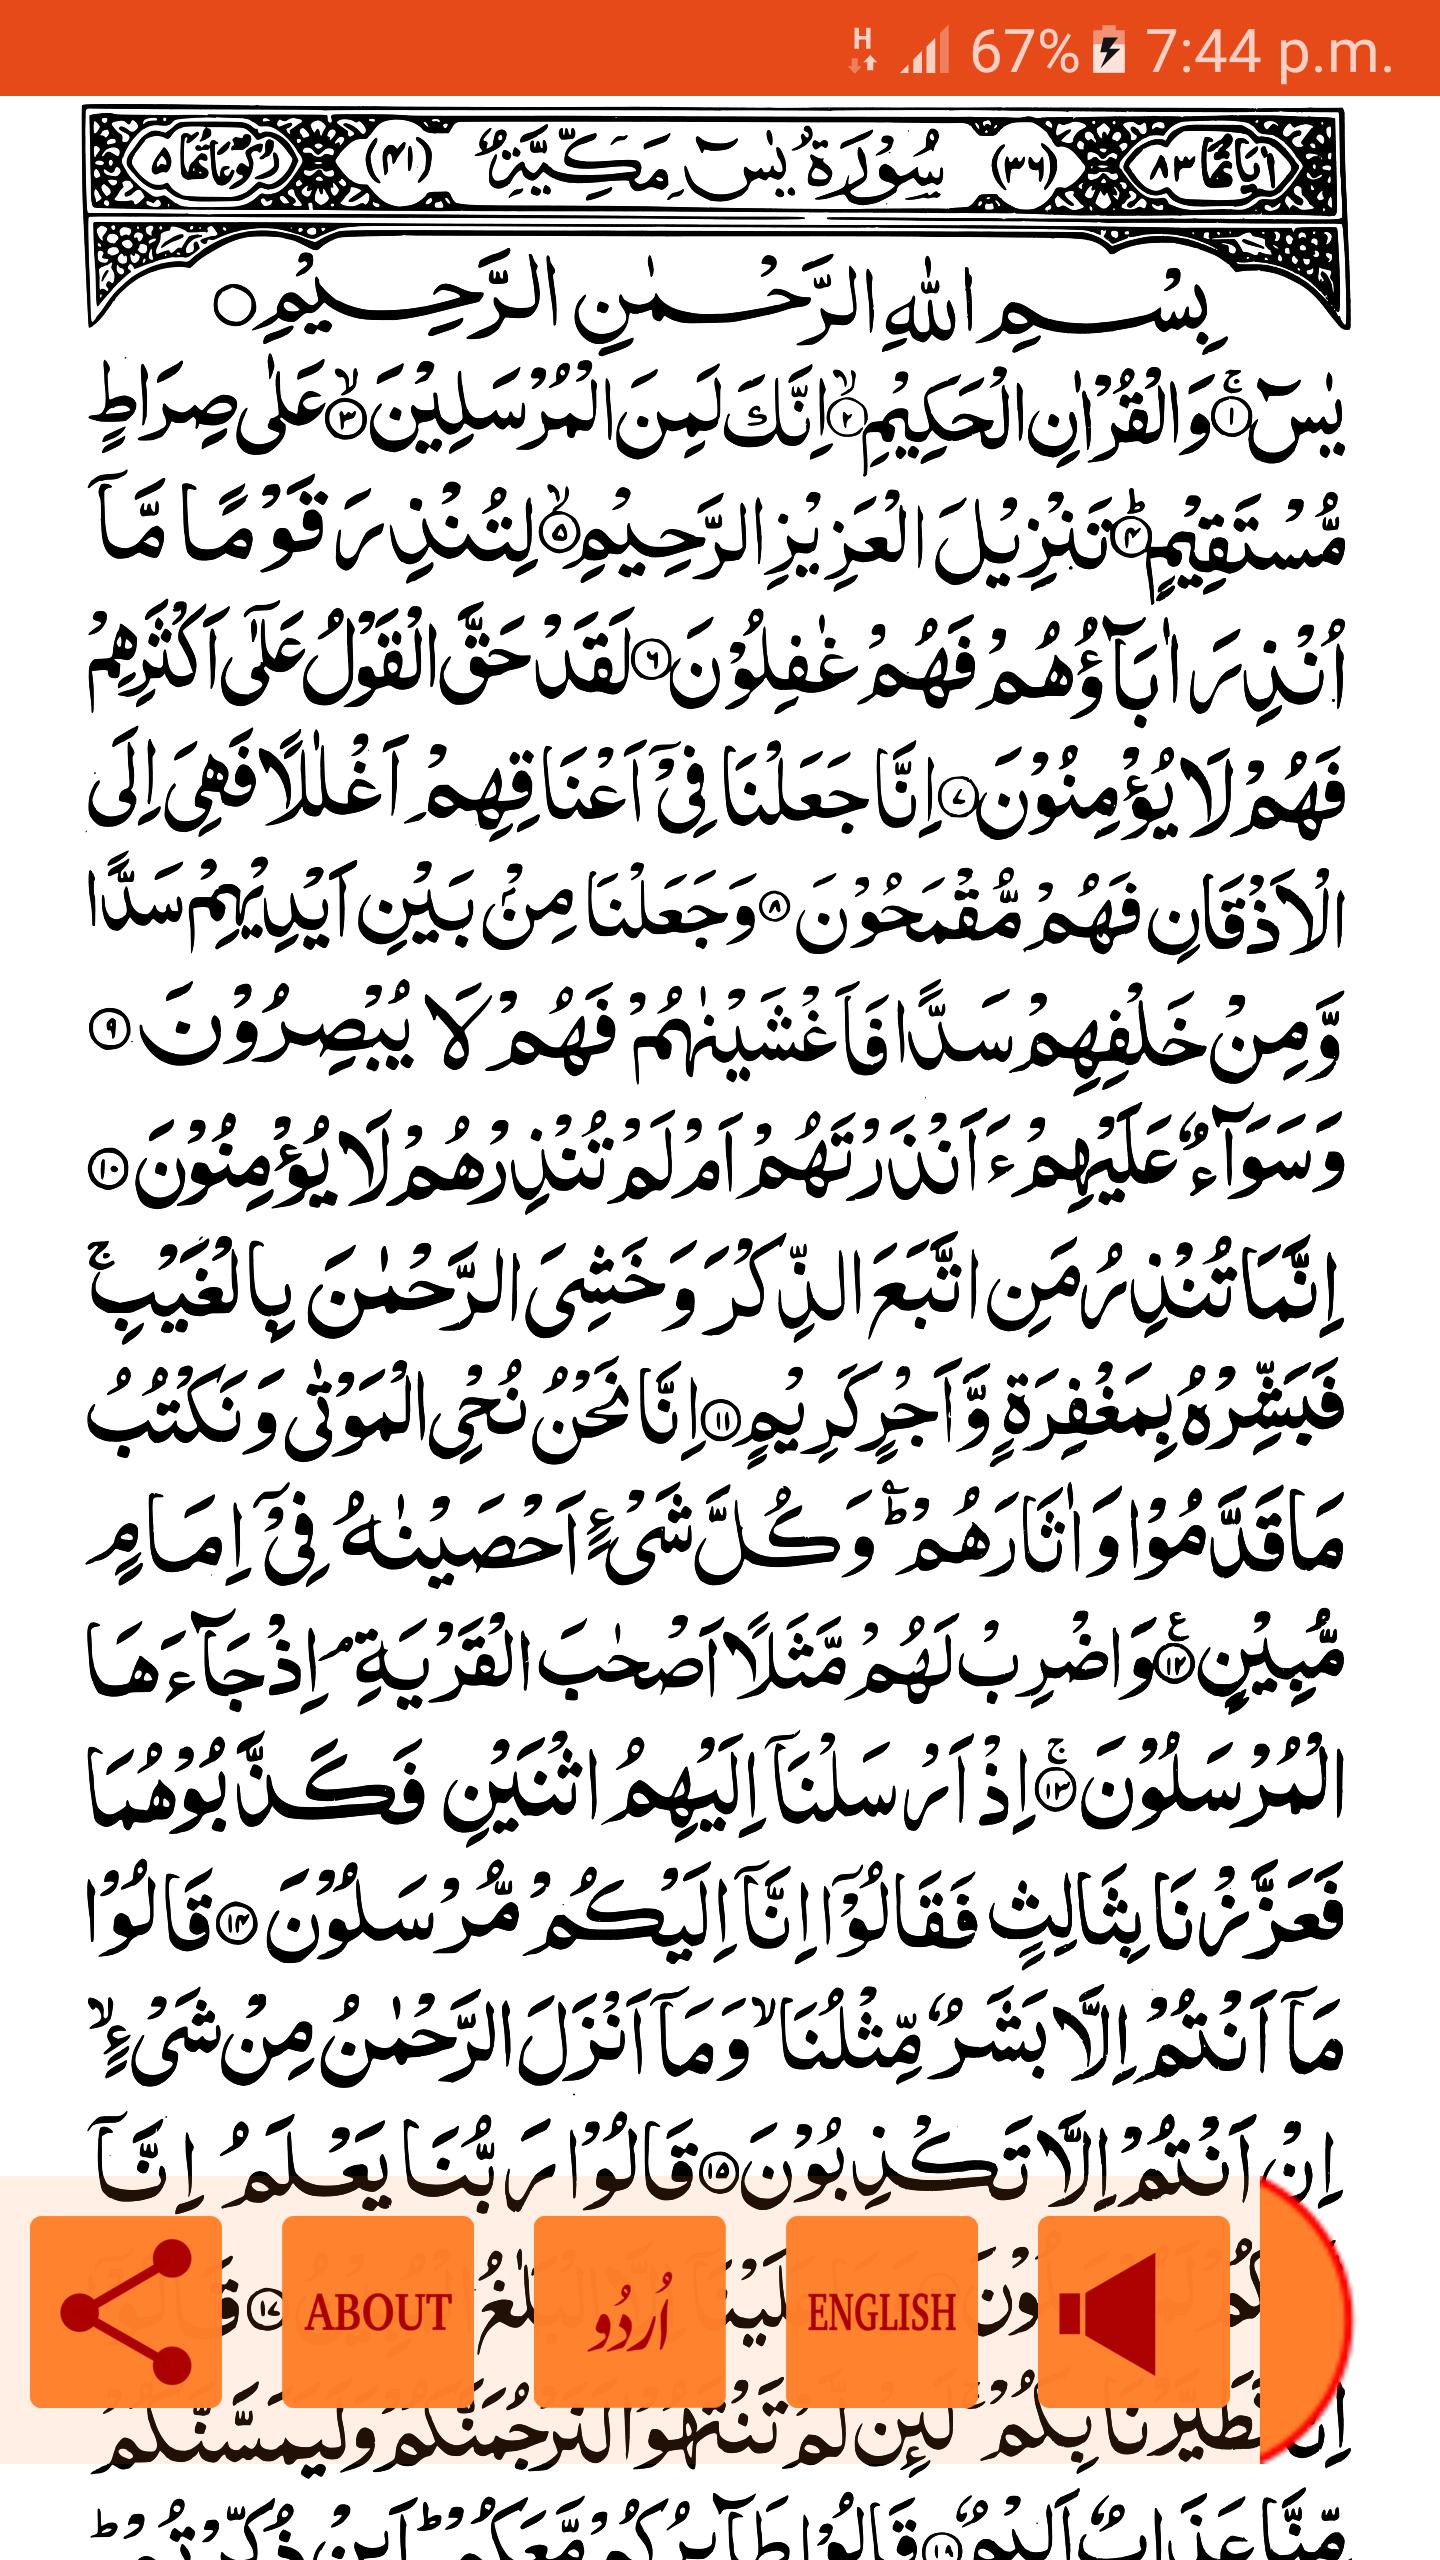 H 67% 7:44 p.m.
اٰيَاتُهَا ٨٣ (٣٦) سُوْرَةُ يٰسٓ مَكِّيَّةٌ (٤١) رُكُوْعَاتُهَا ٥
بِسْمِ اللّٰهِ الرَّحْمٰنِ الرَّحِيْمِ
يٰسٓ ۚ ﴿۱﴾ وَالْقُرْاٰنِ الْحَكِيْمِ ۙ ﴿۲﴾ اِنَّكَ لَمِنَ الْمُرْسَلِيْنَ ۙ ﴿۳﴾ عَلٰى صِرَاطٍ
مُّسْتَقِيْمٍ ؕ ﴿۴﴾ تَنْزِيْلَ الْعَزِيْزِ الرَّحِيْمِ ۙ ﴿۵﴾ لِتُنْذِرَ قَوْمًا مَّآ
اُنْذِرَ اٰبَآؤُهُمْ فَهُمْ غٰفِلُوْنَ ﴿۶﴾ لَقَدْ حَقَّ الْقَوْلُ عَلٰٓى اَكْثَرِهِمْ
فَهُمْ لَا يُؤْمِنُوْنَ ﴿۷﴾ اِنَّا جَعَلْنَا فِيْٓ اَعْنَاقِهِمْ اَغْلٰلًا فَهِيَ اِلَى
الْاَذْقَانِ فَهُمْ مُّقْمَحُوْنَ ﴿۸﴾ وَجَعَلْنَا مِنْۢ بَيْنِ اَيْدِيْهِمْ سَدًّا
وَّمِنْ خَلْفِهِمْ سَدًّا فَاَغْشَيْنٰهُمْ فَهُمْ لَا يُبْصِرُوْنَ ﴿۹﴾
وَسَوَآءٌ عَلَيْهِمْ ءَاَنْذَرْتَهُمْ اَمْ لَمْ تُنْذِرْهُمْ لَا يُؤْمِنُوْنَ ﴿۱۰﴾
اِنَّمَا تُنْذِرُ مَنِ اتَّبَعَ الذِّكْرَ وَخَشِيَ الرَّحْمٰنَ بِالْغَيْبِ ۚ
فَبَشِّرْهُ بِمَغْفِرَةٍ وَّاَجْرٍ كَرِيْمٍ ﴿۱۱﴾ اِنَّا نَحْنُ نُحْيِ الْمَوْتٰى وَنَكْتُبُ
مَا قَدَّمُوْا وَاٰثَارَهُمْ ؕ وَكُلَّ شَيْءٍ اَحْصَيْنٰهُ فِيْٓ اِمَامٍ
مُّبِيْنٍ ﴿۱۲﴾ وَاضْرِبْ لَهُمْ مَّثَلًا اَصْحٰبَ الْقَرْيَةِ ۘ اِذْ جَآءَهَا
الْمُرْسَلُوْنَ ۚ ﴿۱۳﴾ اِذْ اَرْسَلْنَآ اِلَيْهِمُ اثْنَيْنِ فَكَذَّبُوْهُمَا
فَعَزَّزْنَا بِثَالِثٍ فَقَالُوْٓا اِنَّآ اِلَيْكُمْ مُّرْسَلُوْنَ ﴿۱۴﴾ قَالُوْا
مَآ اَنْتُمْ اِلَّا بَشَرٌ مِّثْلُنَا ۙ وَمَآ اَنْزَلَ الرَّحْمٰنُ مِنْ شَيْءٍ ۙ
اِنْ اَنْتُمْ اِلَّا تَكْذِبُوْنَ ﴿۱۵﴾ قَالُوْا رَبُّنَا يَعْلَمُ اِنَّآ
﴿۱۷﴾
ABOUT اُردُو ENGLISH
بِكُمْ ۚ لَئِنْ لَّمْ تَنْتَهُوْا لَنَرْجُمَنَّكُمْ وَلَيَمَسَّنَّكُمْ
مِّنَّا عَذَابٌ اَلِيْمٌ ﴿۱۸﴾ قَالُوْا طَآئِرُكُمْ مَّعَكُمْ ؕ اَئِنْ ذُكِّرْتُمْ ؕ